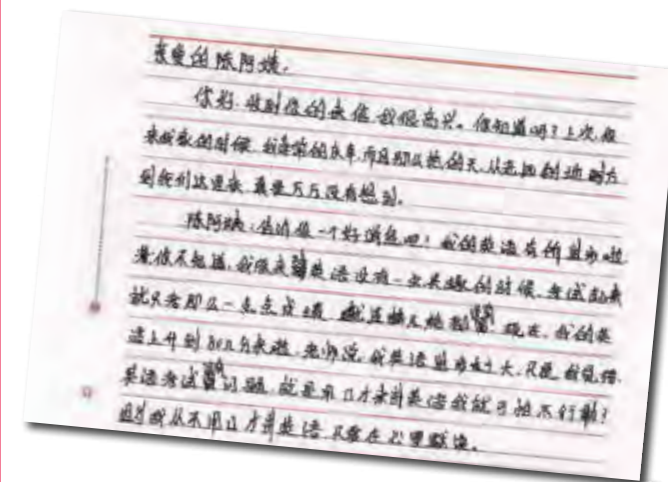 亲爱的陈阿姨:
你好,收到您的来信,我很高兴。您知道吗?上次,您
来我家的时候,我非常的庆幸,而且那么热的天,从老远的地方
到我们这里来,真是万万没有想到。
陈阿姨,告诉您一个好消息吧!我的英语有所进步啦
您不知道,我原来英语没有一点兴趣的时候,考试起来
就只考那么一点点成绩,现在,我的英
语上升到80几分来啦,老师说,我英语进步太大,只是我觉得
英语考试,就是用口才来讲英语我就可抬不行勒?
因为我从不用口才讲英语,只会在心里默读。